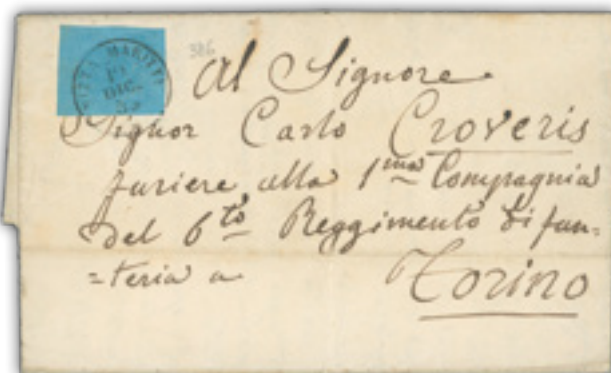 386
Al Signore
Signor Carlo Croveris
furiere alla 1ma Compagnia
del 6to Reggimento di fan-
=teria a Torino